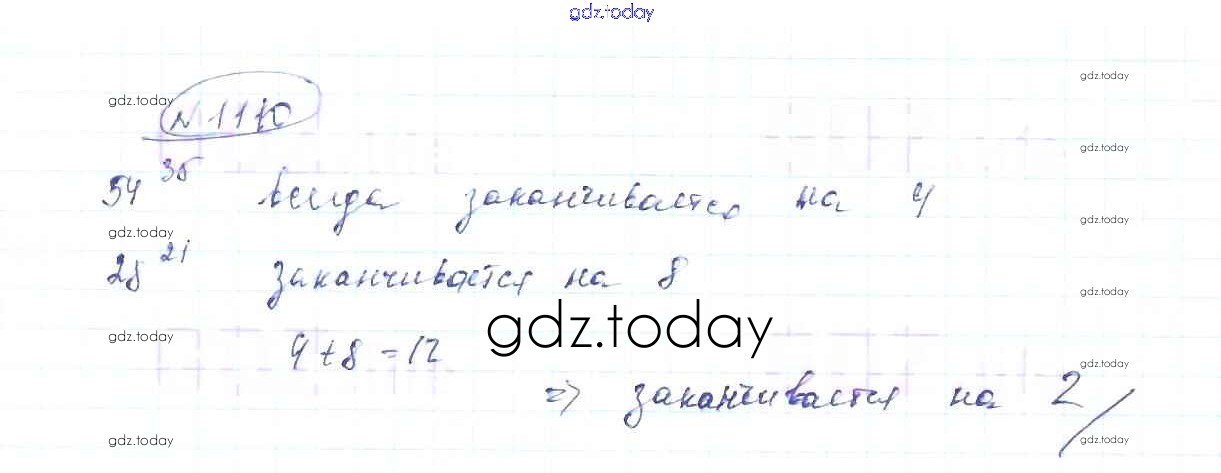 gdz.today
gdz.today
gdz.today
№1110
gdz.today
54³⁵ всегда заканчивается на 4
gdz.today
gdz.today
28²¹ заканчивается на 8
gdz.today
gdz.today
gdz.today
4+8=12
gdz.today
=> заканчивается на 2
gdz.today
gdz.today